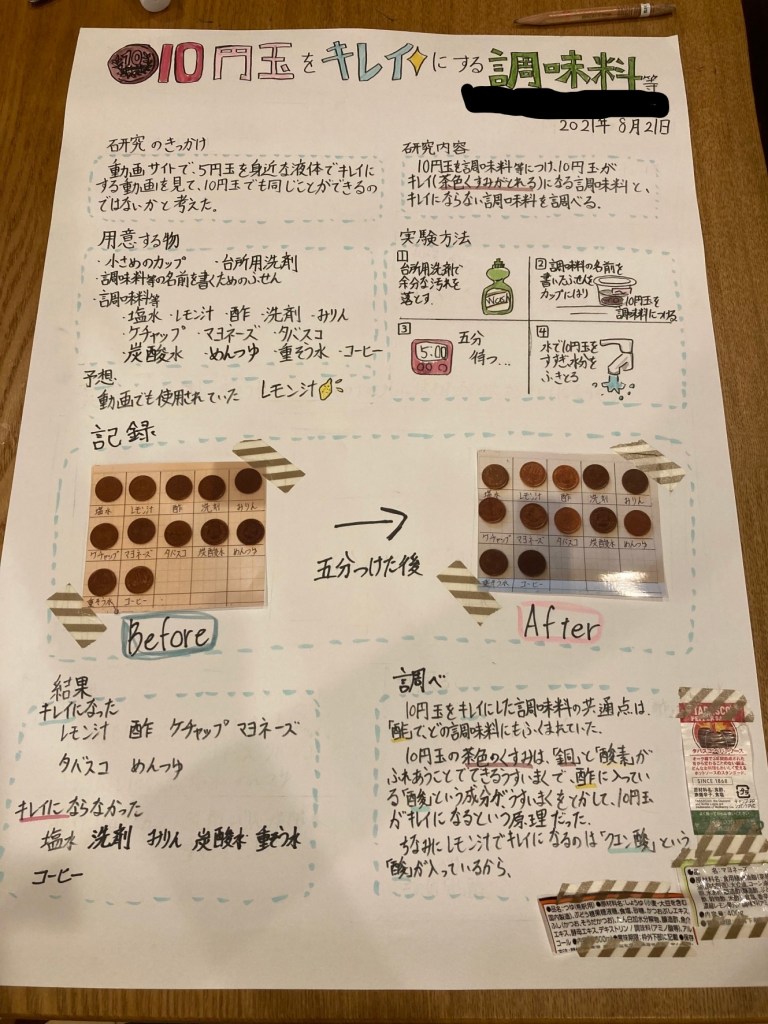 10円玉をキレイにする調味料等
2021年8月21日
研究のきっかけ
動画サイトで、5円玉を身近な液体でキレイに
する動画を見て、10円玉でも同じことができるの
ではないかと考えた。
研究内容
10円玉を調味料等につけ、10円玉が
キレイ(茶色くすみがとれる)になる調味料と、
キレイにならない調味料を調べる。
用意する物
・小さめのカップ ・台所用洗剤
・調味料等の名前を書くためのふせん
・調味料等
・塩水・レモン汁・酢・洗剤・みりん
・ケチャップ・マヨネーズ・タバスコ
・炭酸水・めんつゆ・重そう水・コーヒー
予想
動画でも使用されていた レモン汁
実験方法
1
台所用洗剤で
余分な汚れを
落とす
Wash
2 調味料の名前を
書いたふせんを
カップにはり
10円玉を
調味料につける
3
5:00
五分
待つ...
4
水で10円玉を
すすぎ、水分を
ふきとる
記録
塩水 レモン汁 酢 洗剤 みりん
ケチャップ マヨネーズ タバスコ 炭酸水 めんつゆ
重そう水 コーヒー
Before
五分つけた後
塩水 レモン汁 酢 洗剤 みりん
ケチャップ マヨネーズ タバスコ 炭酸水 めんつゆ
重そう水 コーヒー
After
結果
キレイになった
レモン汁 酢 ケチャップ マヨネーズ
タバスコ めんつゆ
キレイにならなかった
塩水 洗剤 みりん 炭酸水 重そう水
コーヒー
調べ
10円玉をキレイにした調味料の共通点は、
「酢」で、どの調味料にもふくまれていた。
10円玉の茶色のくすみは、「銅」と「酸素」が
ふれあうことでできるうすいまくで、酢に入ってい
る「酸」という成分がうすいまくをとかして、10円玉
がキレイになるという原理だった。
ちなみにレモン汁でキレイになるのは「クエン酸」という
「酸」が入っているから、
SINCE 1868